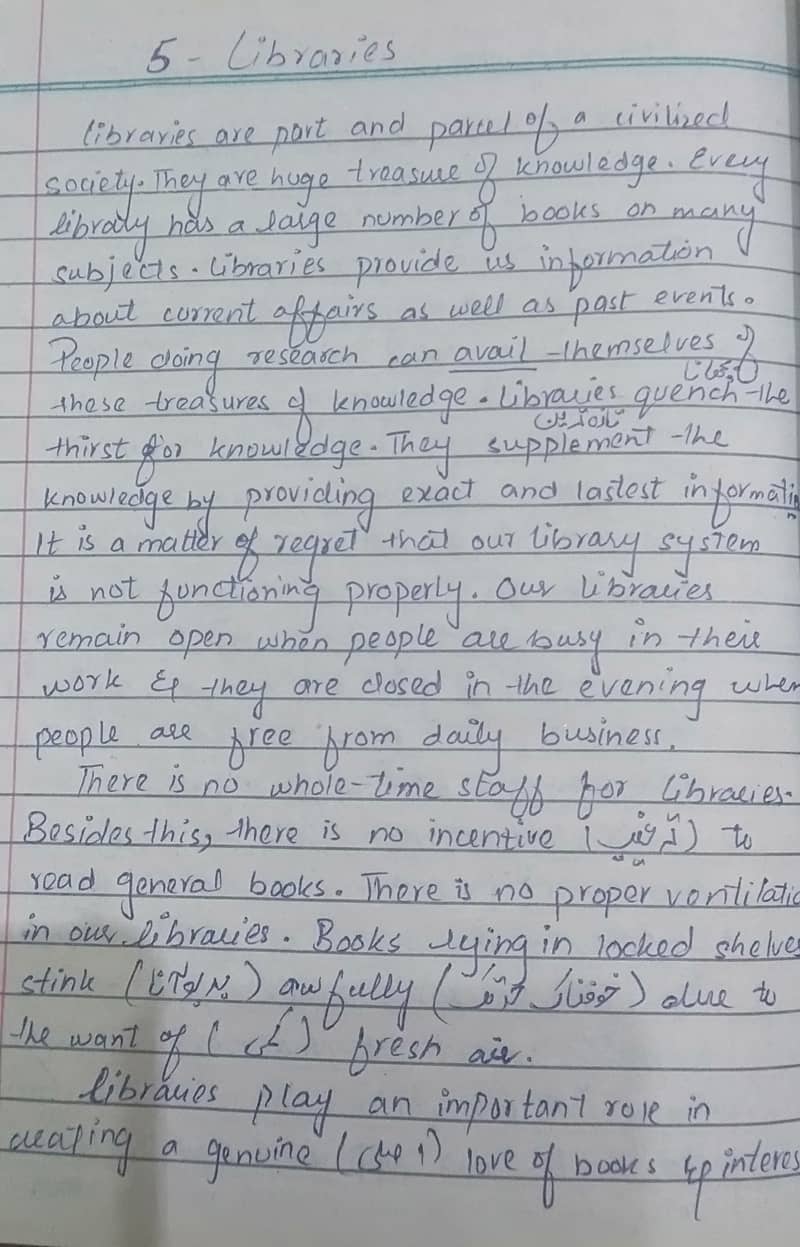 5 - Libraries
Libraries are part and parcel of a civilized
society. They are huge treasure of knowledge. Every
library has a large number of books on many
subjects. Libraries provide us information
about current affairs as well as past events.
People doing research can avail themselves of
these treasures of knowledge. Libraries quench the
thirst for knowledge. They supplement the
knowledge by providing exact and lastest informati
It is a matter of regret that our library system
is not functioning properly. Our libraries
remain open when people are busy in their
work & they are closed in the evening when
people are free from daily business.
There is no whole-time staff for libraries.
Besides this, there is no incentive (ترغیب) to
read general books. There is no proper ventilatio
in our libraries. Books lying in locked shelves
stink (بدبو) awfully (خوفناک طور پر) due to
the want of (کمی) fresh air.
Libraries play an important role in
creating a genuine (اصلی) love of books & interes